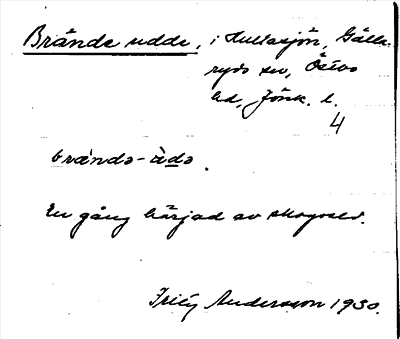 Brände udde, i Hultasjön, Gälla-
ryds sn, Östbo
hd, Jönk. l.
4
brändə-ùdə.
En gång härjad av skogseld.
Fritz Andersson 1930.